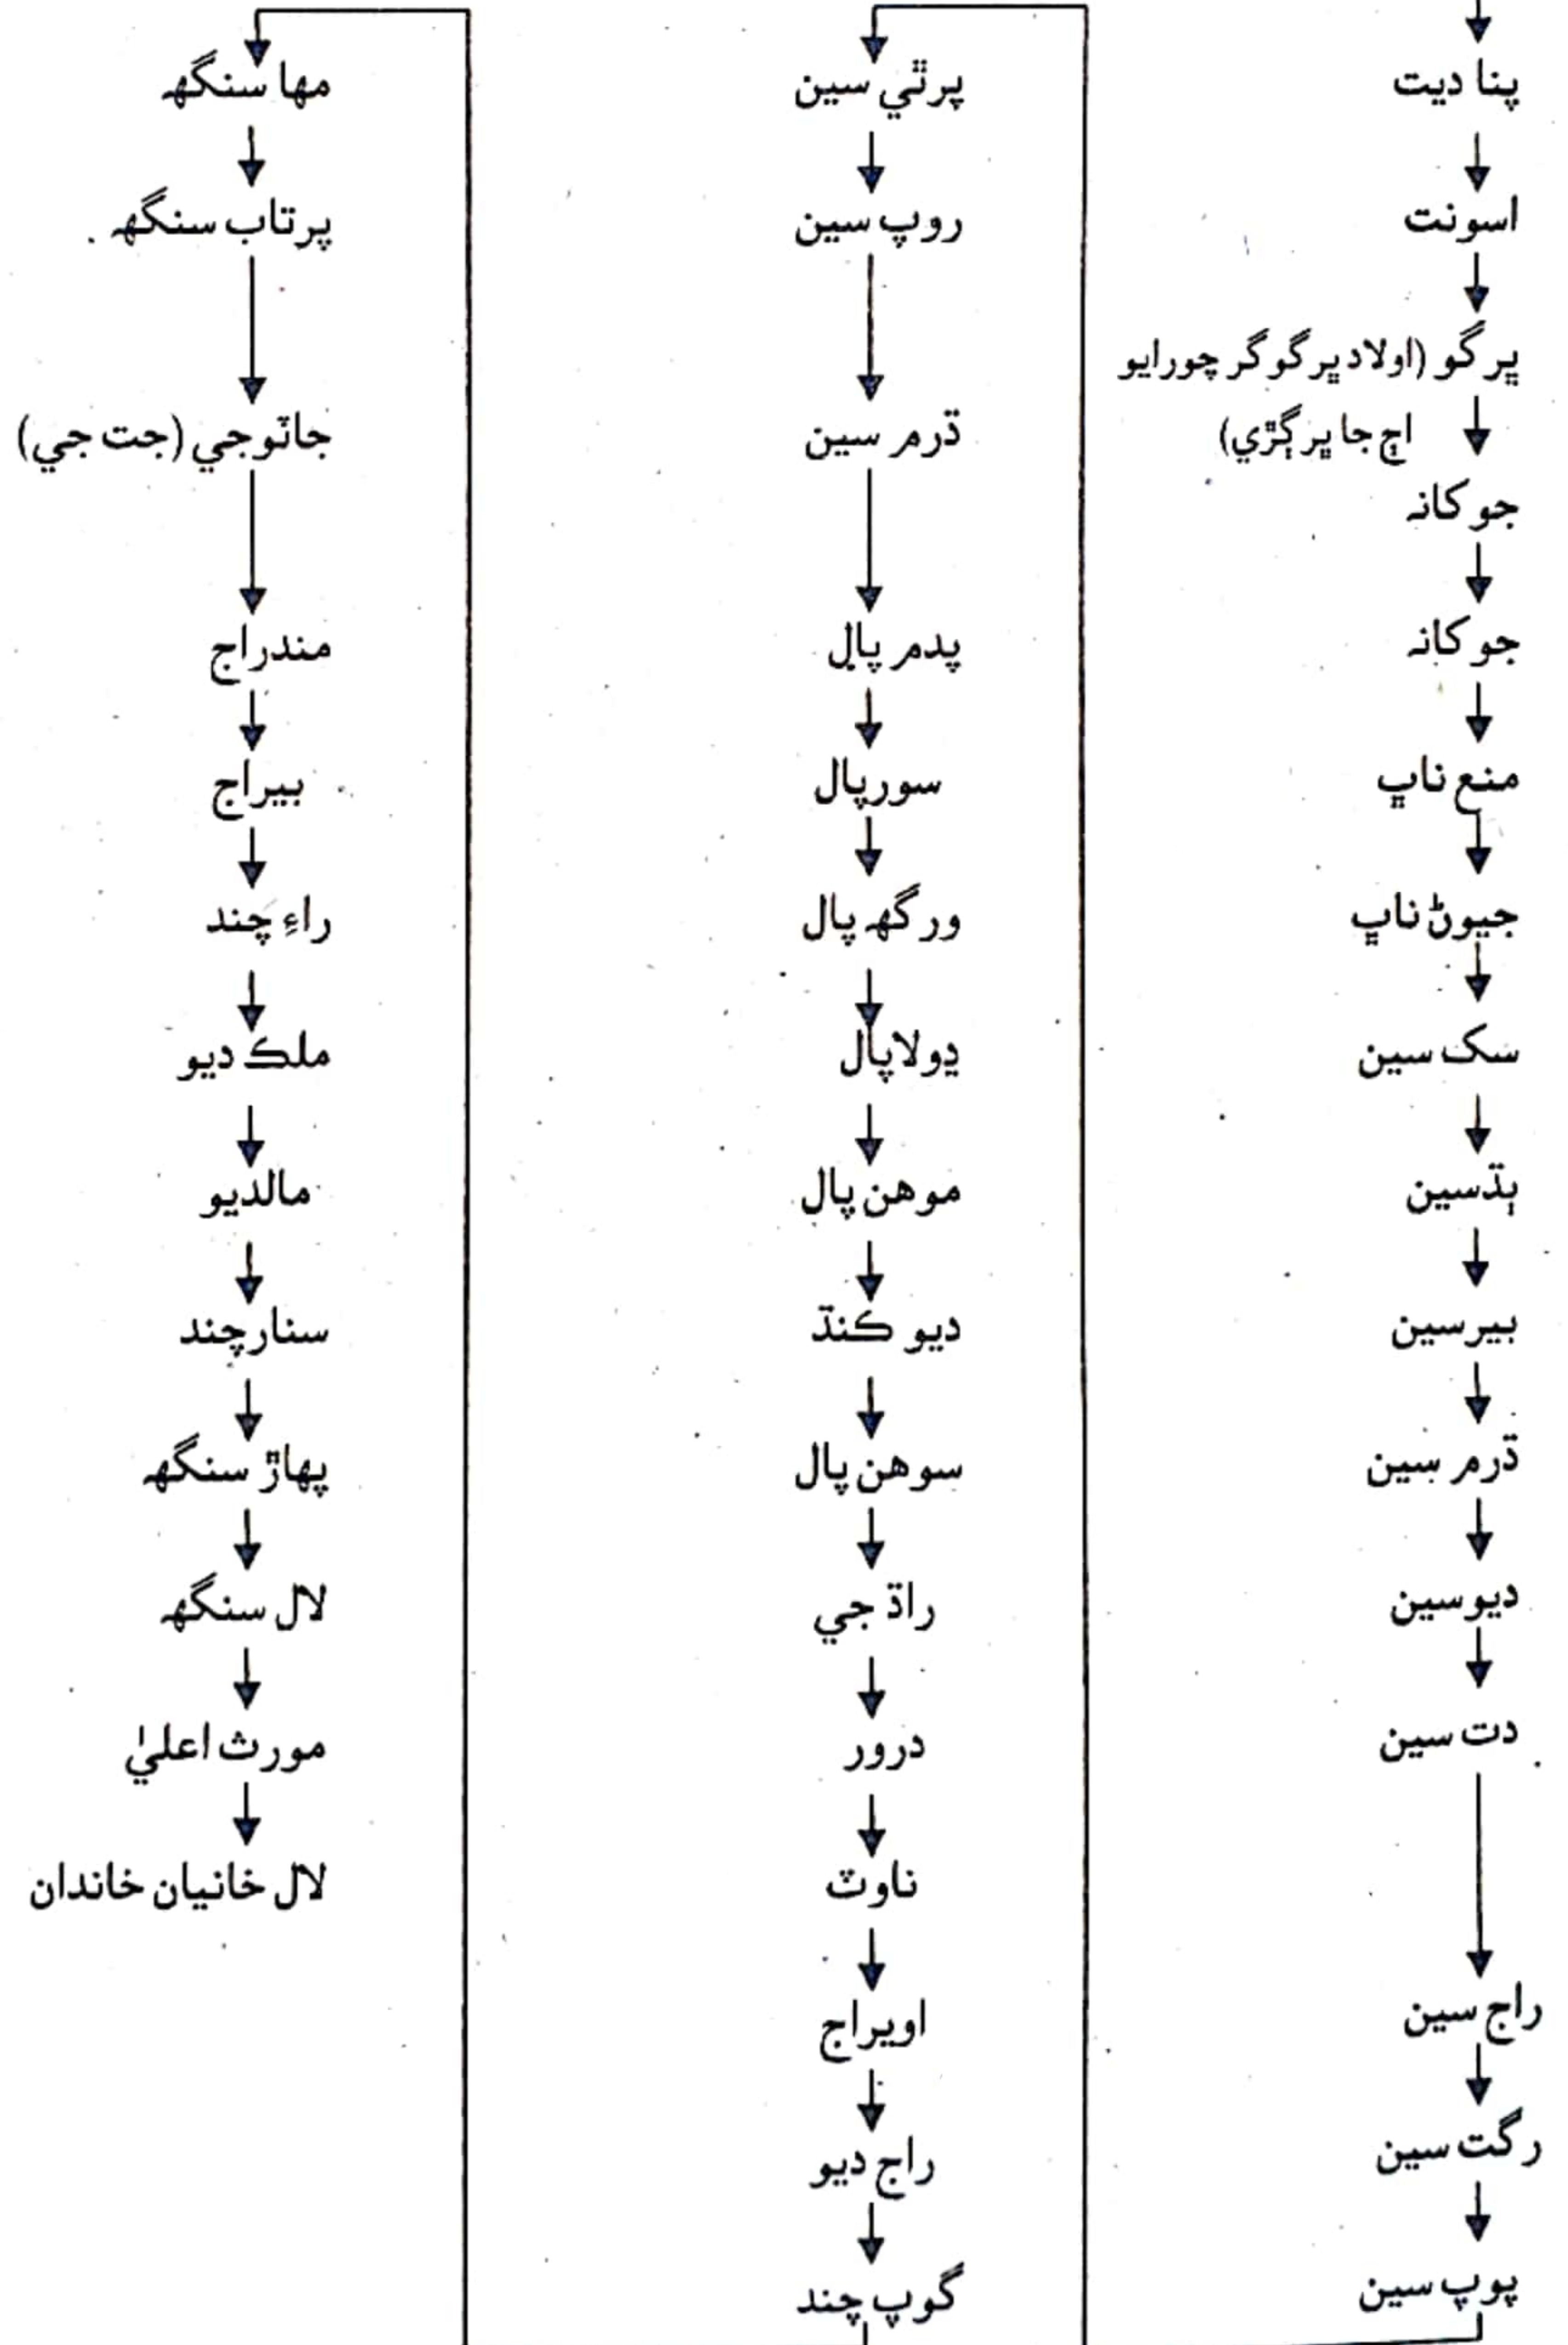 پنا ديت
اسونت
ڀرگو (اولاد ڀرگوگر چورايو
اڄ جا ڀرڳڙي)
جوکانہ
جوکانہ
منع ناڀ
جيوڻ ناڀ
سک سين
ٻڌسين
بيرسين
ڌرم سين
ديوسين
دت سين
راج سين
رگت سين
پوپ سين
پرٿي سين
روپ سين
ڌرم سين
پدم پال
سورپال
ورگهہ پال
ڍولاپال
موهن پال
ديو ڪنڌ
سوهن پال
راڌ جي
درور
ناوٽ
اويراج
راج ديو
گوپ چند
مها سنگهہ
پرتاب سنگهہ
جاٽوجي (جت جي)
مندراج
بيراج
راءِ چند
ملڪ ديو
مالديو
سنارچند
پهاڙ سنگهہ
لال سنگهہ
مورث اعليٰ
لال خانيان خاندان